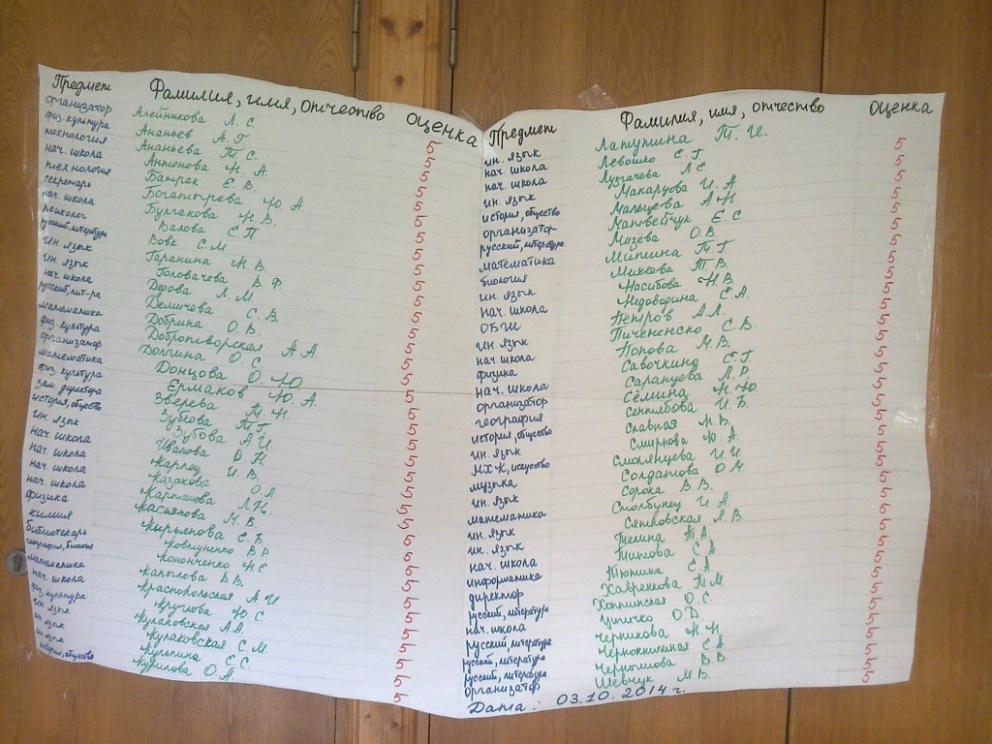 Предмет Фамилия, имя, отчество Оценка
организатор Алейникова Л. С. 5
физ. культура Ананьев А. Г. 5
технология Ананьева Т. С. 5
нач. школа Антонова Н. А. 5
технология Батрак Е. В. 5
секретарь Богатырева Ю. А. 5
нач. школа Булгакова Н. В. 5
психолог Валова Е. П. 5
русский, литература Вовк С. М. 5
ин. язык Гаранина Н. В. 5
ин. язык Головачева В. Ф. 5
нач. школа Дедова Л. М. 5
русский, лит-ра Демичева С. В. 5
математика Добрина О. В. 5
физ. культура Добротворская А. А. 5
организатор Долгина О. С. 5
математика Донцова О. Ю. 5
физ. культура Ермаков Ю. А. 5
зам. директора Зверева Т. Н. 5
история, общество Зубкова Т. Г. 5
ин. язык Зубова А. И. 5
нач. школа Иванова В. Н. 5
нач. школа Карпец И. В. 5
нач. школа Казакова О. Л. 5
нач. школа Карпанова Л. Н. 5
физика Касьянова М. В. 5
химия Кирьенова Е. Б. 5
библиотекарь Ковтуненко В. Р. 5
география, биология Кононченко Н. Е. 5
математика Копылова В. В. 5
нач. школа Краснопольская А. И. 5
физ. культура Круглова Ю. С. 5
ин. язык Кулаковская А. А. 5
ин. язык Кулаковская С. М. 5
ин. язык Купьпина С. С. 5
история, общество Курилова О. А. 5
Предмет Фамилия, имя, отчество Оценка
ин. язык Лапупина Т. И. 5
нач. школа Левошко Е. Г. 5
нач. школа Лузгачева Л. С. 5
ин. язык Макаруова И. А. 5
история, общество Мальцева А. Н. 5
организатор Матвейчук Е. С. 5
русский, литература Мизева О. В. 5
математика Митина Т. Г. 5
биология Михеева Т. В. 5
ин. язык Насибова Н. В. 5
нач. школа Недоводина Е. А. 5
ОБЖ Петров А. Л. 5
ин. язык Пичененско С. В. 5
нач. школа Попова М. В. 5
физика Савочкина Е. Г. 5
нач. школа Саранцева Л. Р. 5
организатор Сёмина Н. Ю. 5
география Сентябова И. Б. 5
история, общество Славная Н. В. 5
ин. язык Смирнова Ю. А. 5
МХК, искусство Смолянцева И. И. 5
музыка Солдатова О. М. 5
ин. язык Сорока В. В. 5
математика Столбунец И. А. 5
ин. язык Сятковская Л. В. 5
ин. язык Тегина Т. А. 5
нач. школа Титова С. А. 5
информатика Тюнина Е. А. 5
директор Хавренкова Т. М. 5
русский, литература Хатпинская О. С. 5
нач. школа Цпичко О. Д. 5
русский, литература Черникова Н. Н. 5
русский, литература Чернокнижная Е. А. 5
русский, литература Чернышова В. В. 5
организатор Шевчук М. В. 5
Дата: 03.10.2014 г.